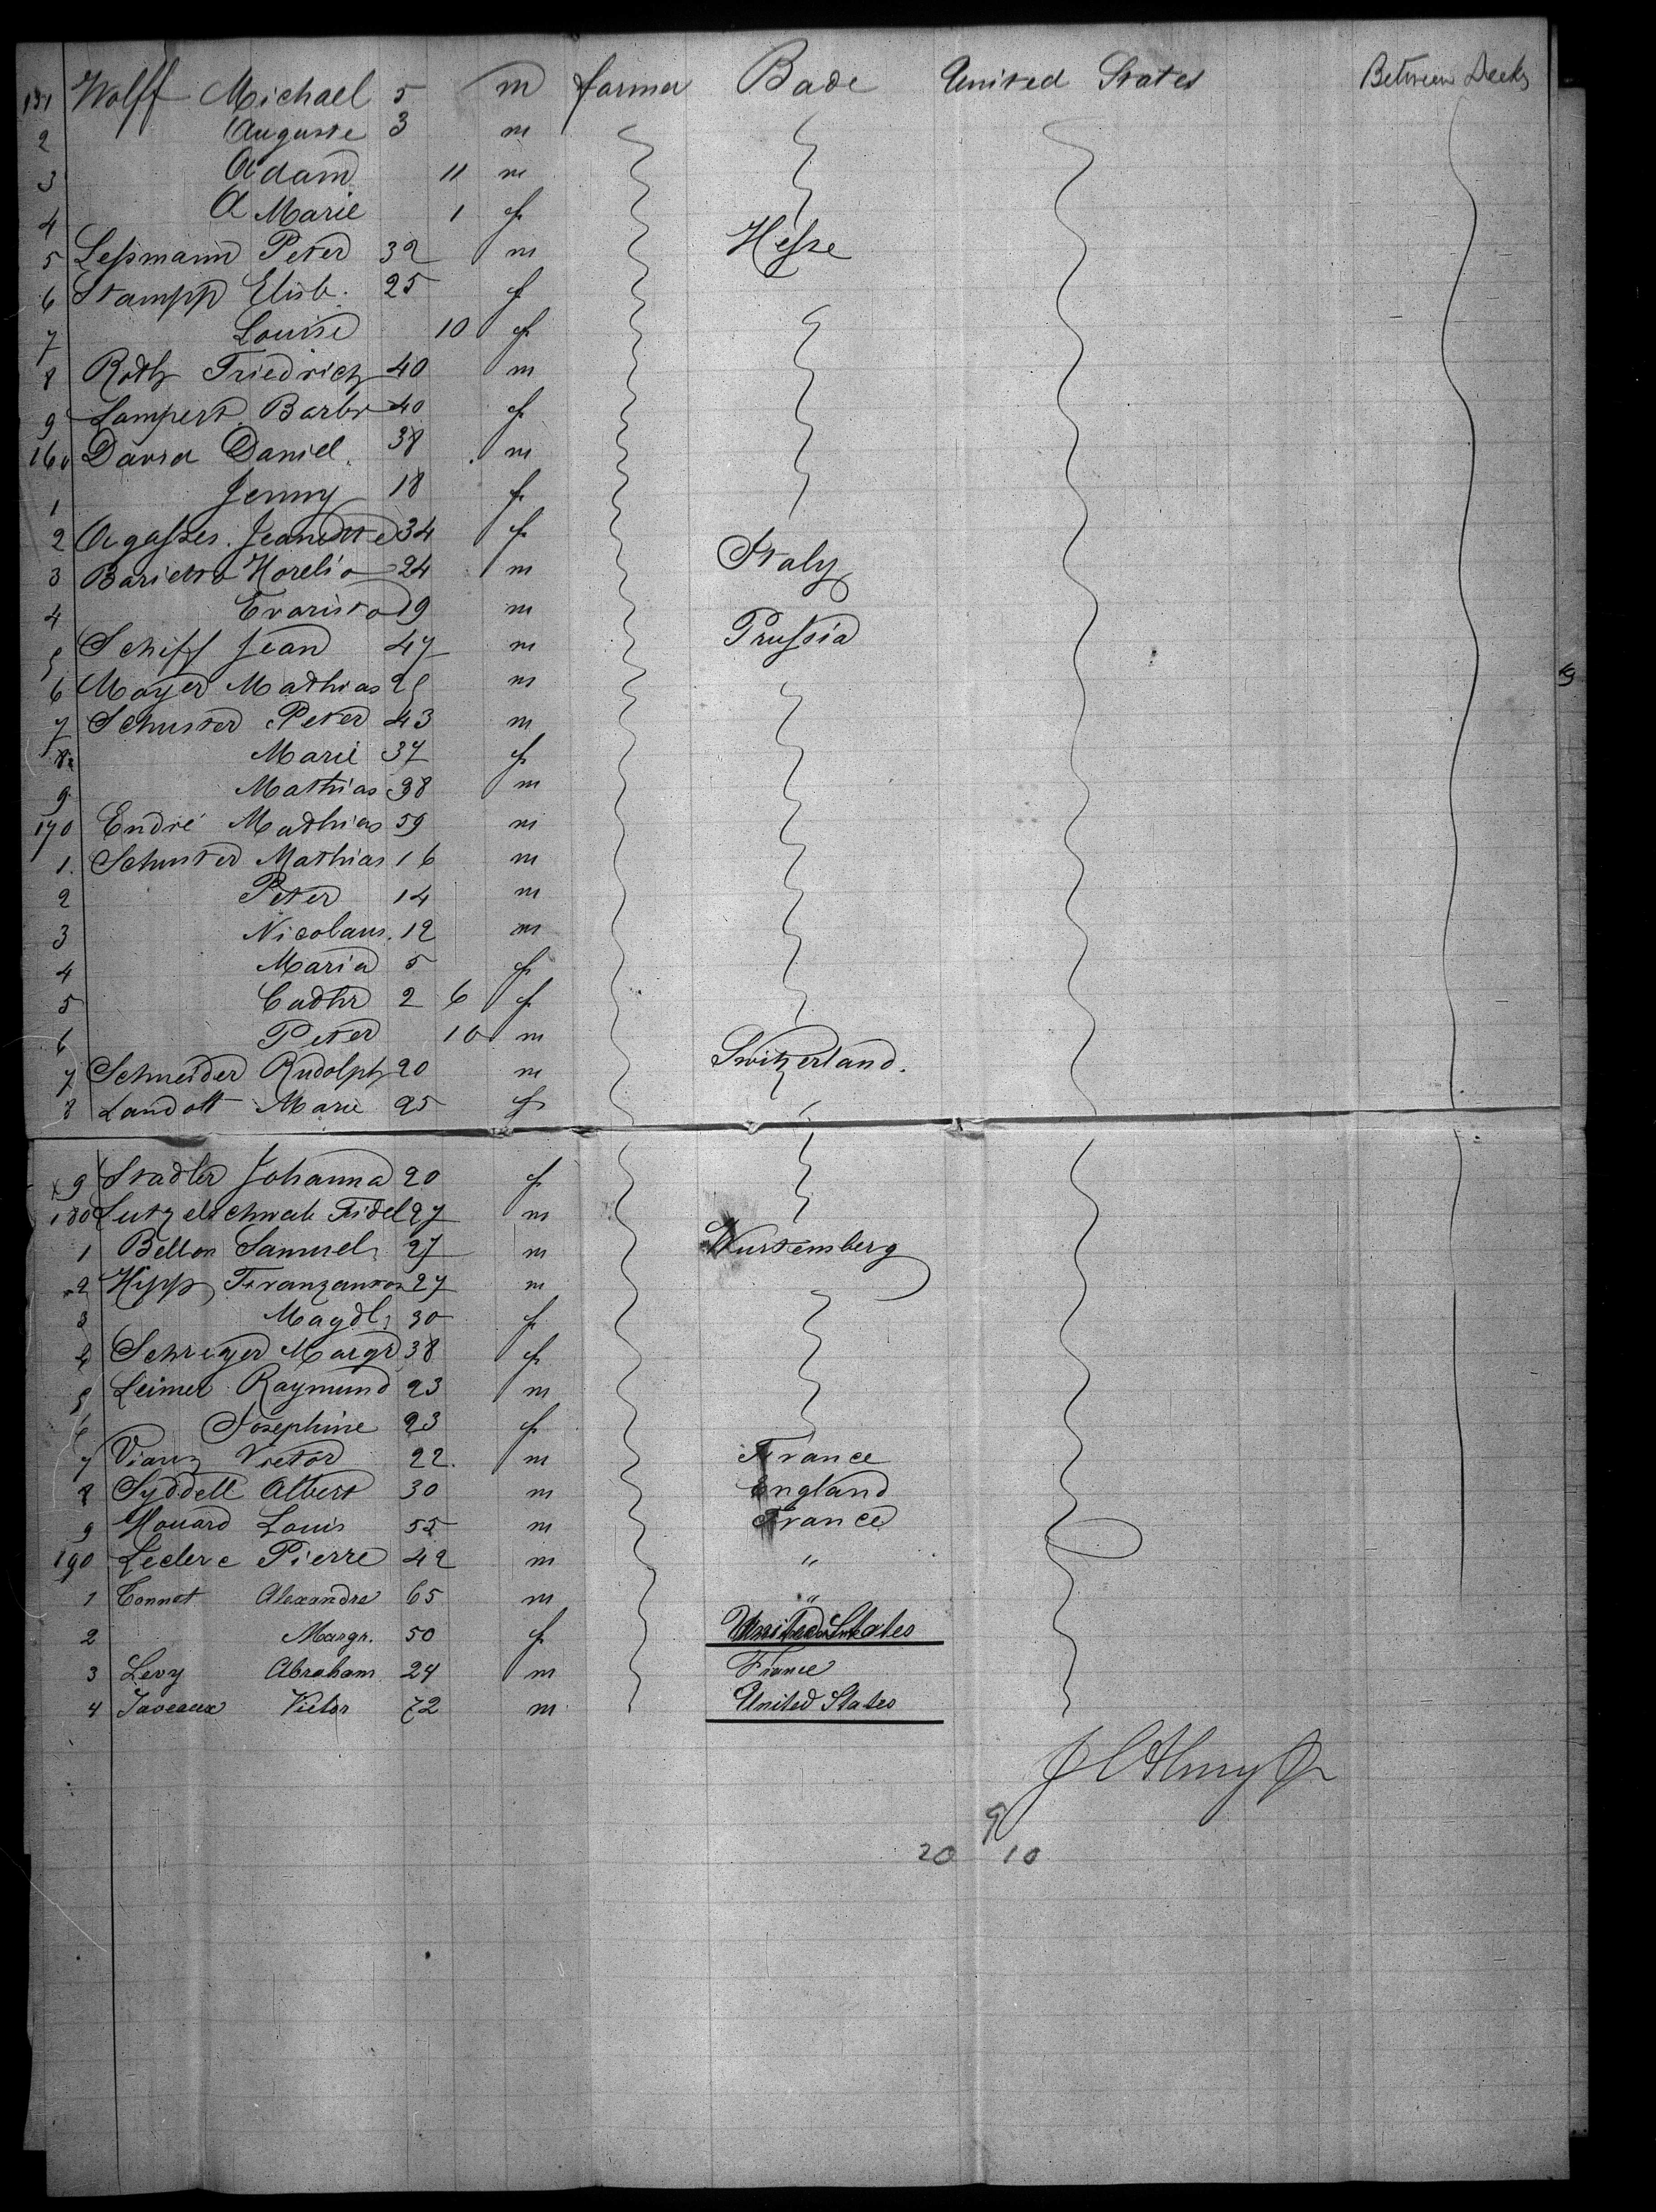 151 Wolff Michael 5 m farmer Bade United States Between Decks
2 Auguste 3 m
3 Adam 11 m
4 A Marie 1 f
5 Leßmann Peter 32 m Heſse
6 Stampp Elisb. 25 f
7 Louise 10 f
8 Roth Friedrich 40 m
9 Lampert Barbr 40 f
160 Daniel 38 m
1 Jenny 18 f
2 Jeanette 34 f
3 Horelio 24 m Italy
4 Evaristo 19 m
5 Schiff Jean 47 m Pruſsia
6 Mayer Mathias 25 m
7 Schuster Peter 43 m
8 Marie 37 f
9 Mathias 38 m
170 Endré Mathias 59 m
1. Schuster Mathias 16 m
2 Peter 14 m
3 Nicolaus. 12 m
4 Maria 5 f
5 Cathr 2 6 f
6 Peter 10 m
7 Schneider Rudolph 20 m Switzerland.
8 Landolt Marie 25 f
9 Stadler Johanna 20 f
180 Lutzelschwab Fidel 27 m
1 Bellon Samuel 27 m Wurtemberg
2 Hipp Franzanton 27 m
3 Magdl. 30 f
4 Margr 38 f
5 Leimer Raymund 23 m
6 Josephine 23 f
7 Victor 22. m France
8 Syddell Albert 30 m England
9 Houard Louis 55 m France
190 Leclerc Pierre 42 m "
1 Connot Alexandre 65 m "
2 Margr. 50 f United States
3 Levy Abraham 24 m France
4 Javeaux Victor 72 m United States
9
20 10